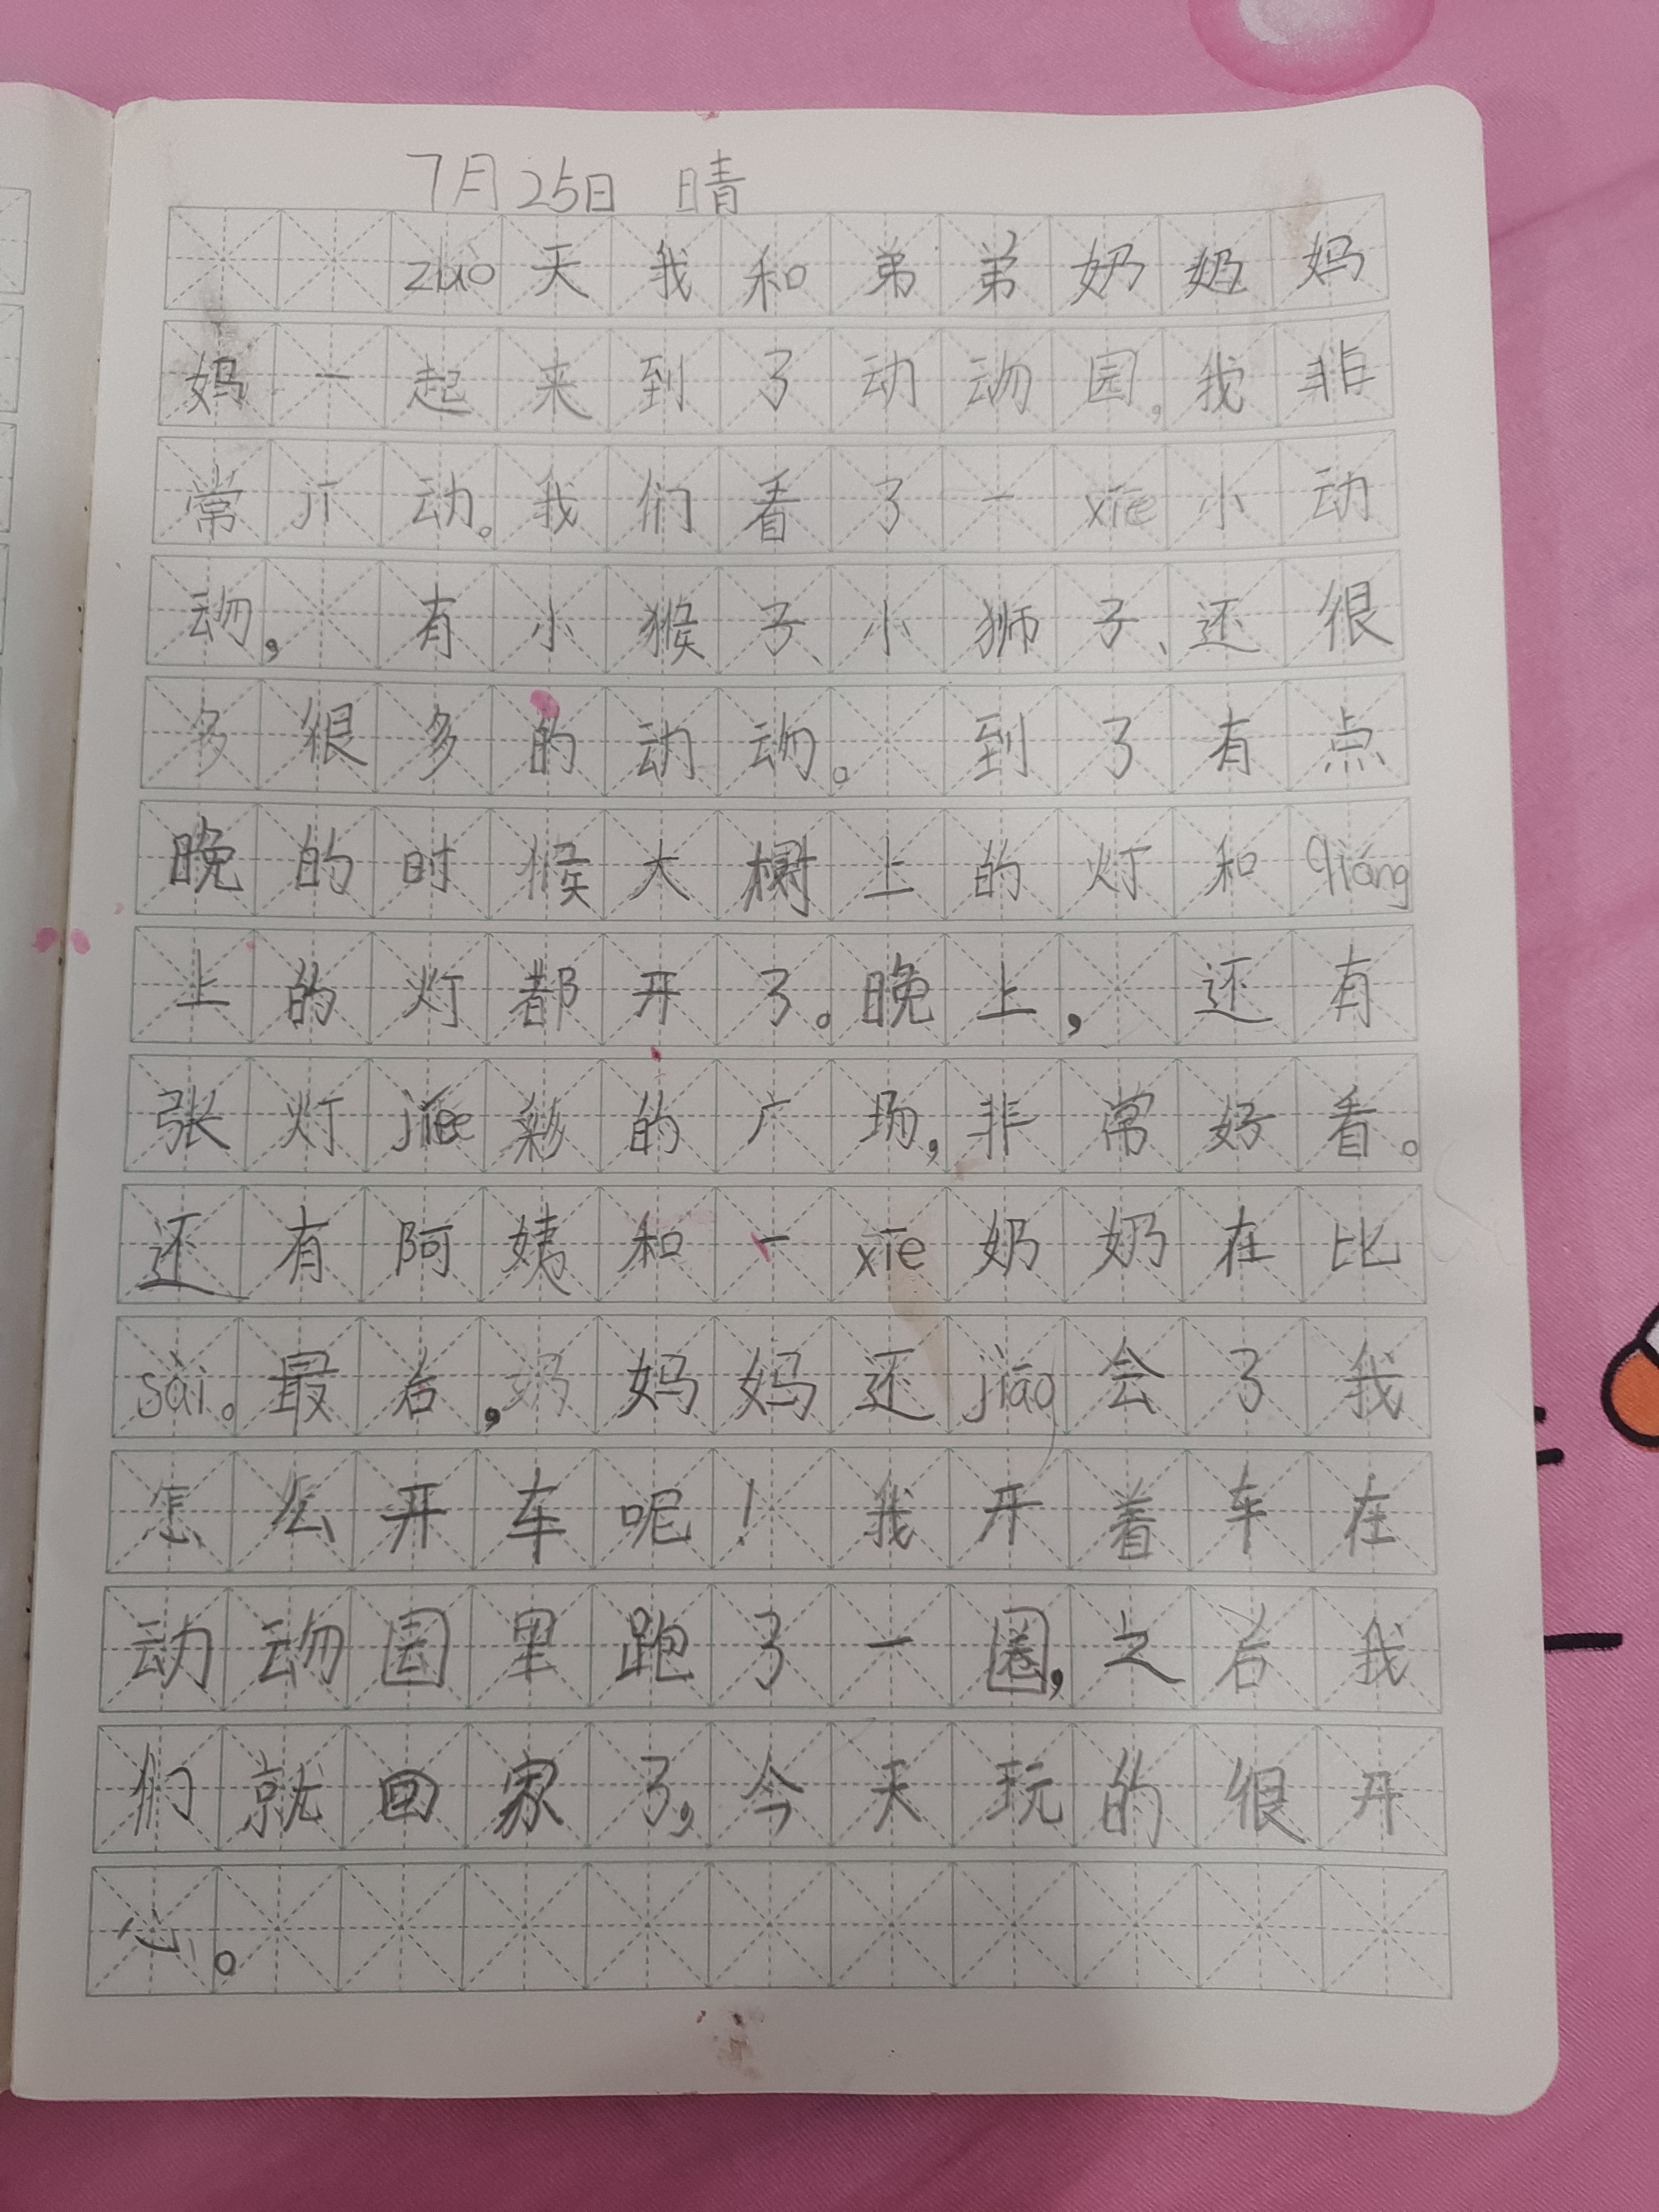 7月25日 晴
zuò天我和弟弟奶奶妈
妈一起来到了动动园，我非
常jī动。我们看了一xiē小动
动，有小猴子、小狮子、还很
多很多的动动。到了有点
晚的时猴大树上的灯和qiáng
上的灯都开了。晚上，还有
张灯jiē彩的广场，非常好看。
还有阿姨和一xiē奶奶在比
sài。最后，妈妈还jiāo会了我
怎么开车呢！我开着车在
动动园里跑了一圈，之后我
们就回家了，今天玩的很开
心。